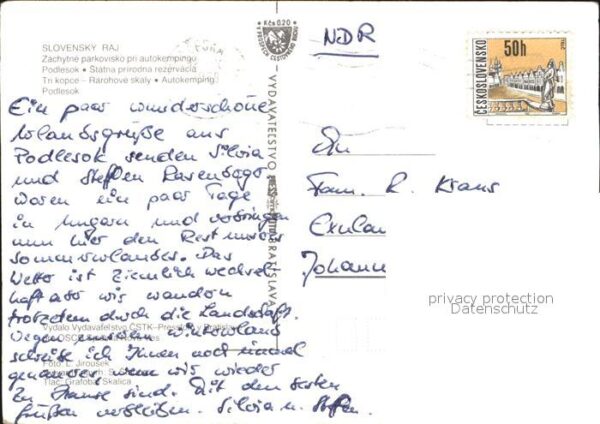 SLOVENSKÝ RAJ
Záchytné parkovisko pri autokempingu
Podlesok • Štátna prírodná rezervácia
Tri kopce – Rárohové skaly • Autokemping
Podlesok
Ein paar wunderschöne
Urlaubsgrüße aus
Podlesok senden Silvia
und Steffen
Waren ein paar Tage
in Ungarn und verbringen
nun hier den Rest unseres
Sommerurlaubes. Das
Wetter ist ziemlich wechsel
haft aber wir wandern
trotzdem durch die Landschaft.
Wegen unserem Winterurlaub
schreibe ich Ihnen noch einmal
genauer wenn wir wieder
zu Hause sind. Mit den besten
Grüßen verbleiben. Silvia u. Steffen.
Vydalo Vydavateľstvo ČSTK–Pressfoto v Bratislave
Foto: L. Jiroušek
Tlač: Grafobal Skalica
Kčs 0,20
VYDAVATEĽSTVO
BRATISLAVA
NDR
ČESKOSLOVENSKO
50h
An
Fam. R. Kraus
Johann
privacy protection
Datenschutz